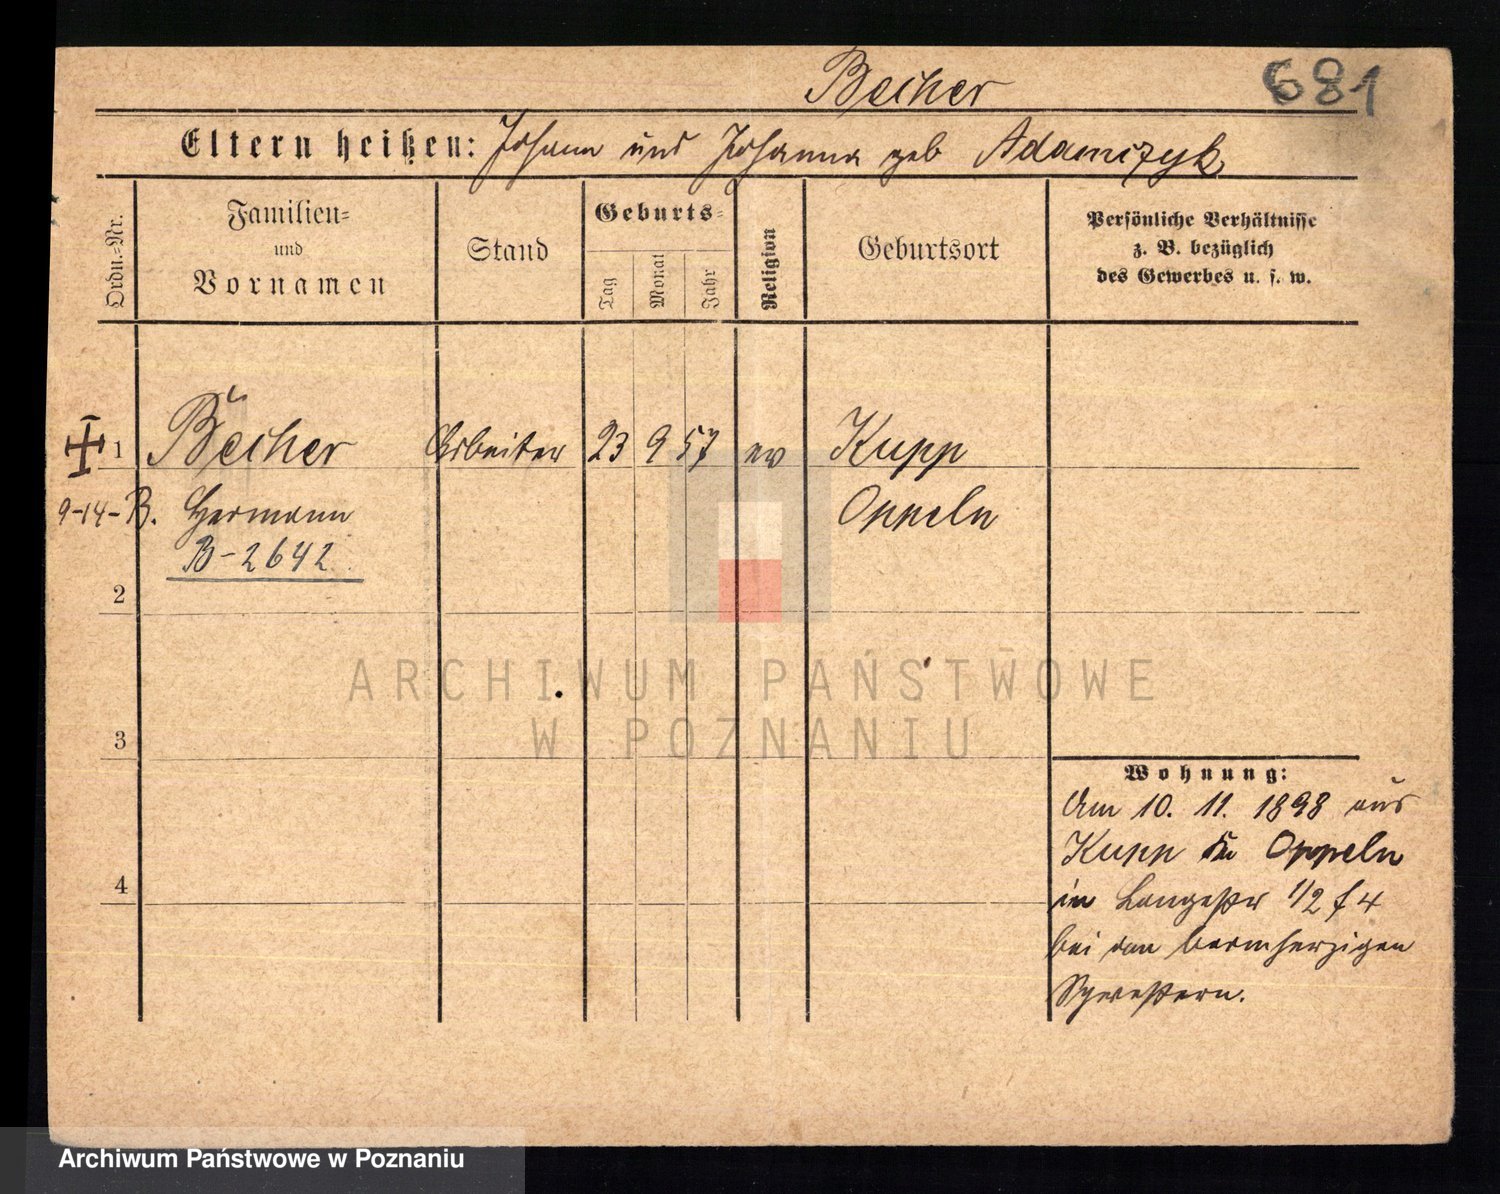 Becher
681
Eltern heißen: Johann und Johanna geb Adamczyk
Ordn.-Nr.
Familien-
und
Vornamen
Stand
Geburts-
Tag
Monat
Jahr
Religion
Geburtsort
Persönliche Verhältnisse
z. B. bezüglich
des Gewerbes u. s. w.
1 Becher Arbeiter 23 9 57 ev Kupp
9-14- B. Hermann Oppeln
B-2642
2
3
4
Wohnung:
Am 10. 11. 1898 aus
Kupp Oppeln
in Langestr 1/2
bei den barmherzigen
Schwestern.
ARCHIWUM PAŃSTWOWE
W POZNANIU
Archiwum Państwowe w Poznaniu